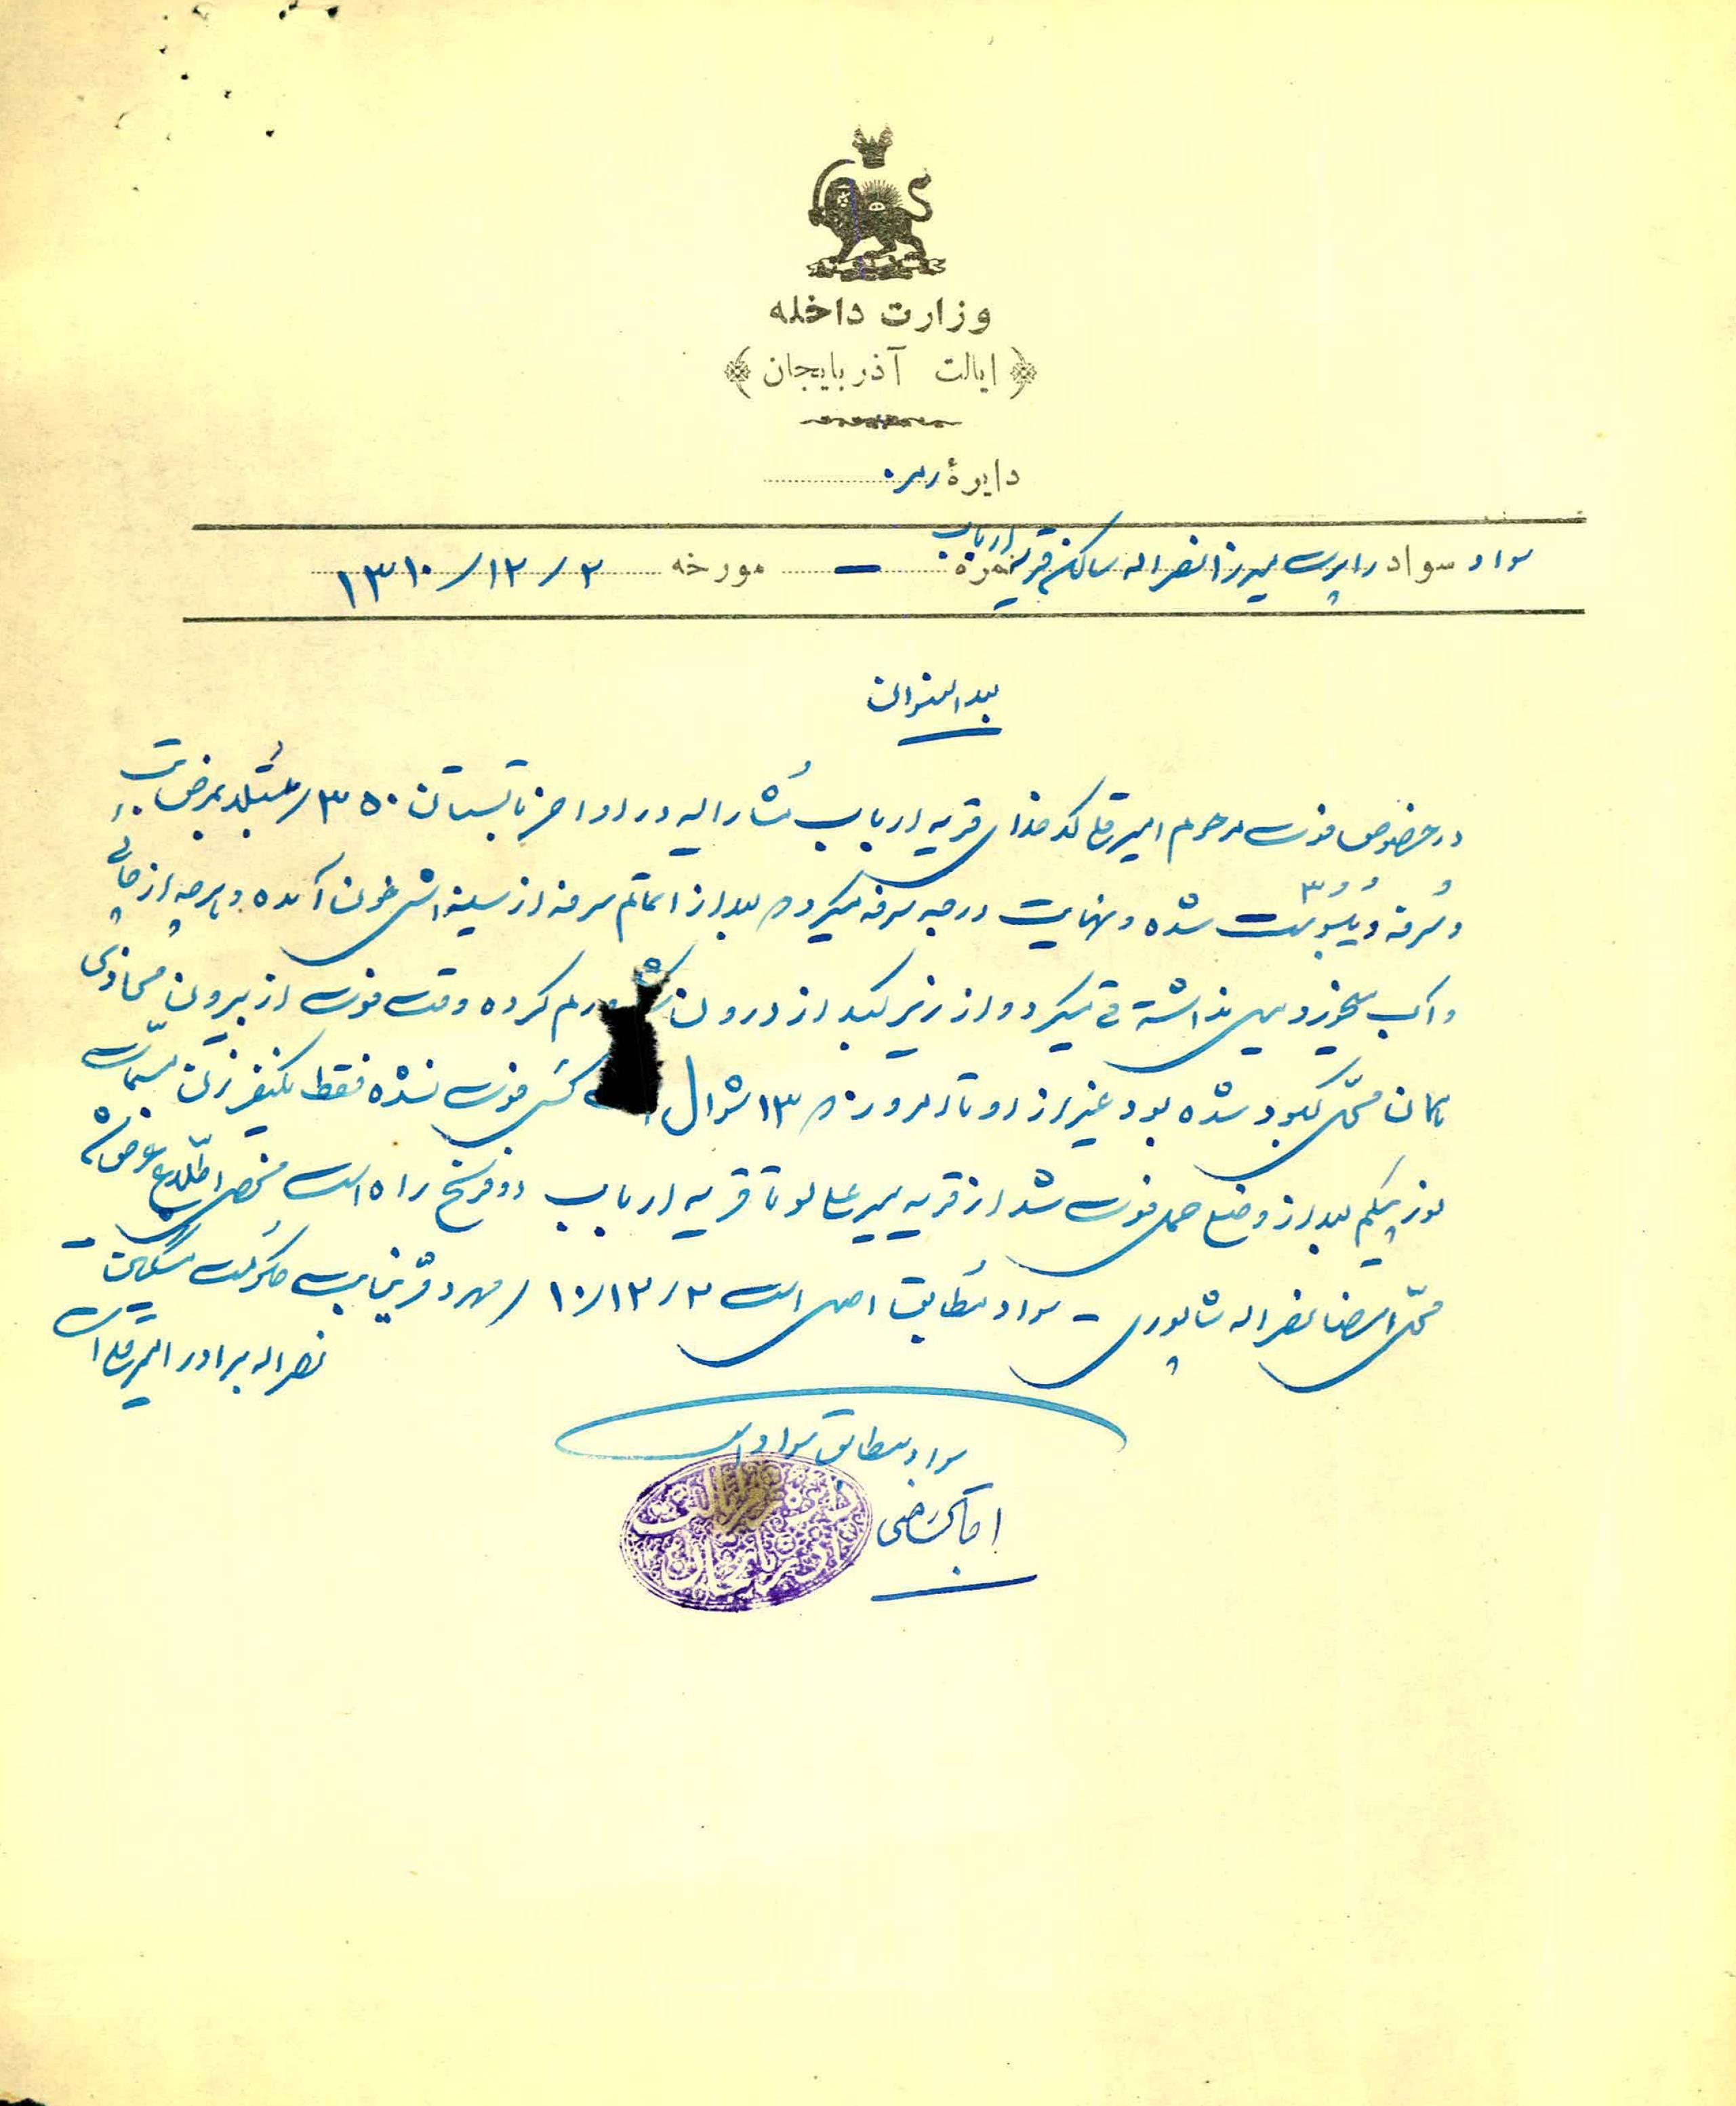 وزارت داخله
ایالت آذربایجان
دایرهٔ
سواد سواد راپرت میرزا نصراله ساکن قریه ارباب نمره — مورخه ۲ / ۱۲ / ۱۳۱۰
بعدالعنوان
در خصوص فوت مرحوم امیرقلی کدخدای قریه ارباب مشارالیه در اواخر تابستان ۳۵۰ مبتلا بمرض تب
و سرفه و یبوست شده و نهایت درجه سرفه میکرد و بعد از اتمام سرفه از سینه‌اش خون آمده و پارچه از چائی
و آب میخورد میل نداشته قی میکرد و از زیر کبد از درون ورم کرده وقت فوت از بیرون محاذی
همان محل کبود شده بود غیر از او تا امروزه ۱۳ شوال کسی فوت نشده فقط یکنفر زن مسمات
بیگم بعد از وضع حمل فوت شد از قریه میر عالو تا قریه ارباب دو فرسخ راه است محض اطلاع عرض شد
محل امضا نصراله شاپوری – سواد مطابق اصل است ۱۰/۱۲/۳ مهر دفتر نیابت حکومت مشگین –
نصراله برادر امیرقلی است
سواد مطابق سواد است
ایالت آذربایجان